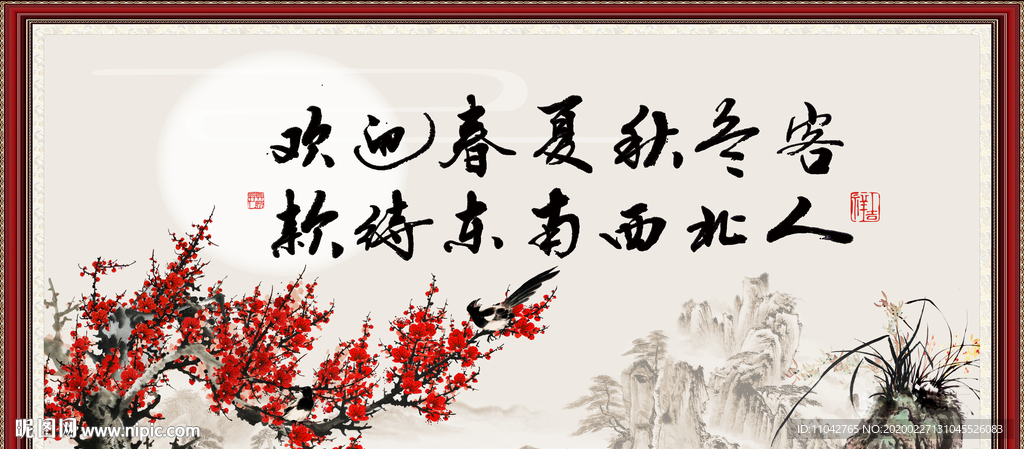 欢迎春夏秋冬客
款待东南西北人
昵图网 www.nipic.com
ID:11042765 NO:20200227131045526083